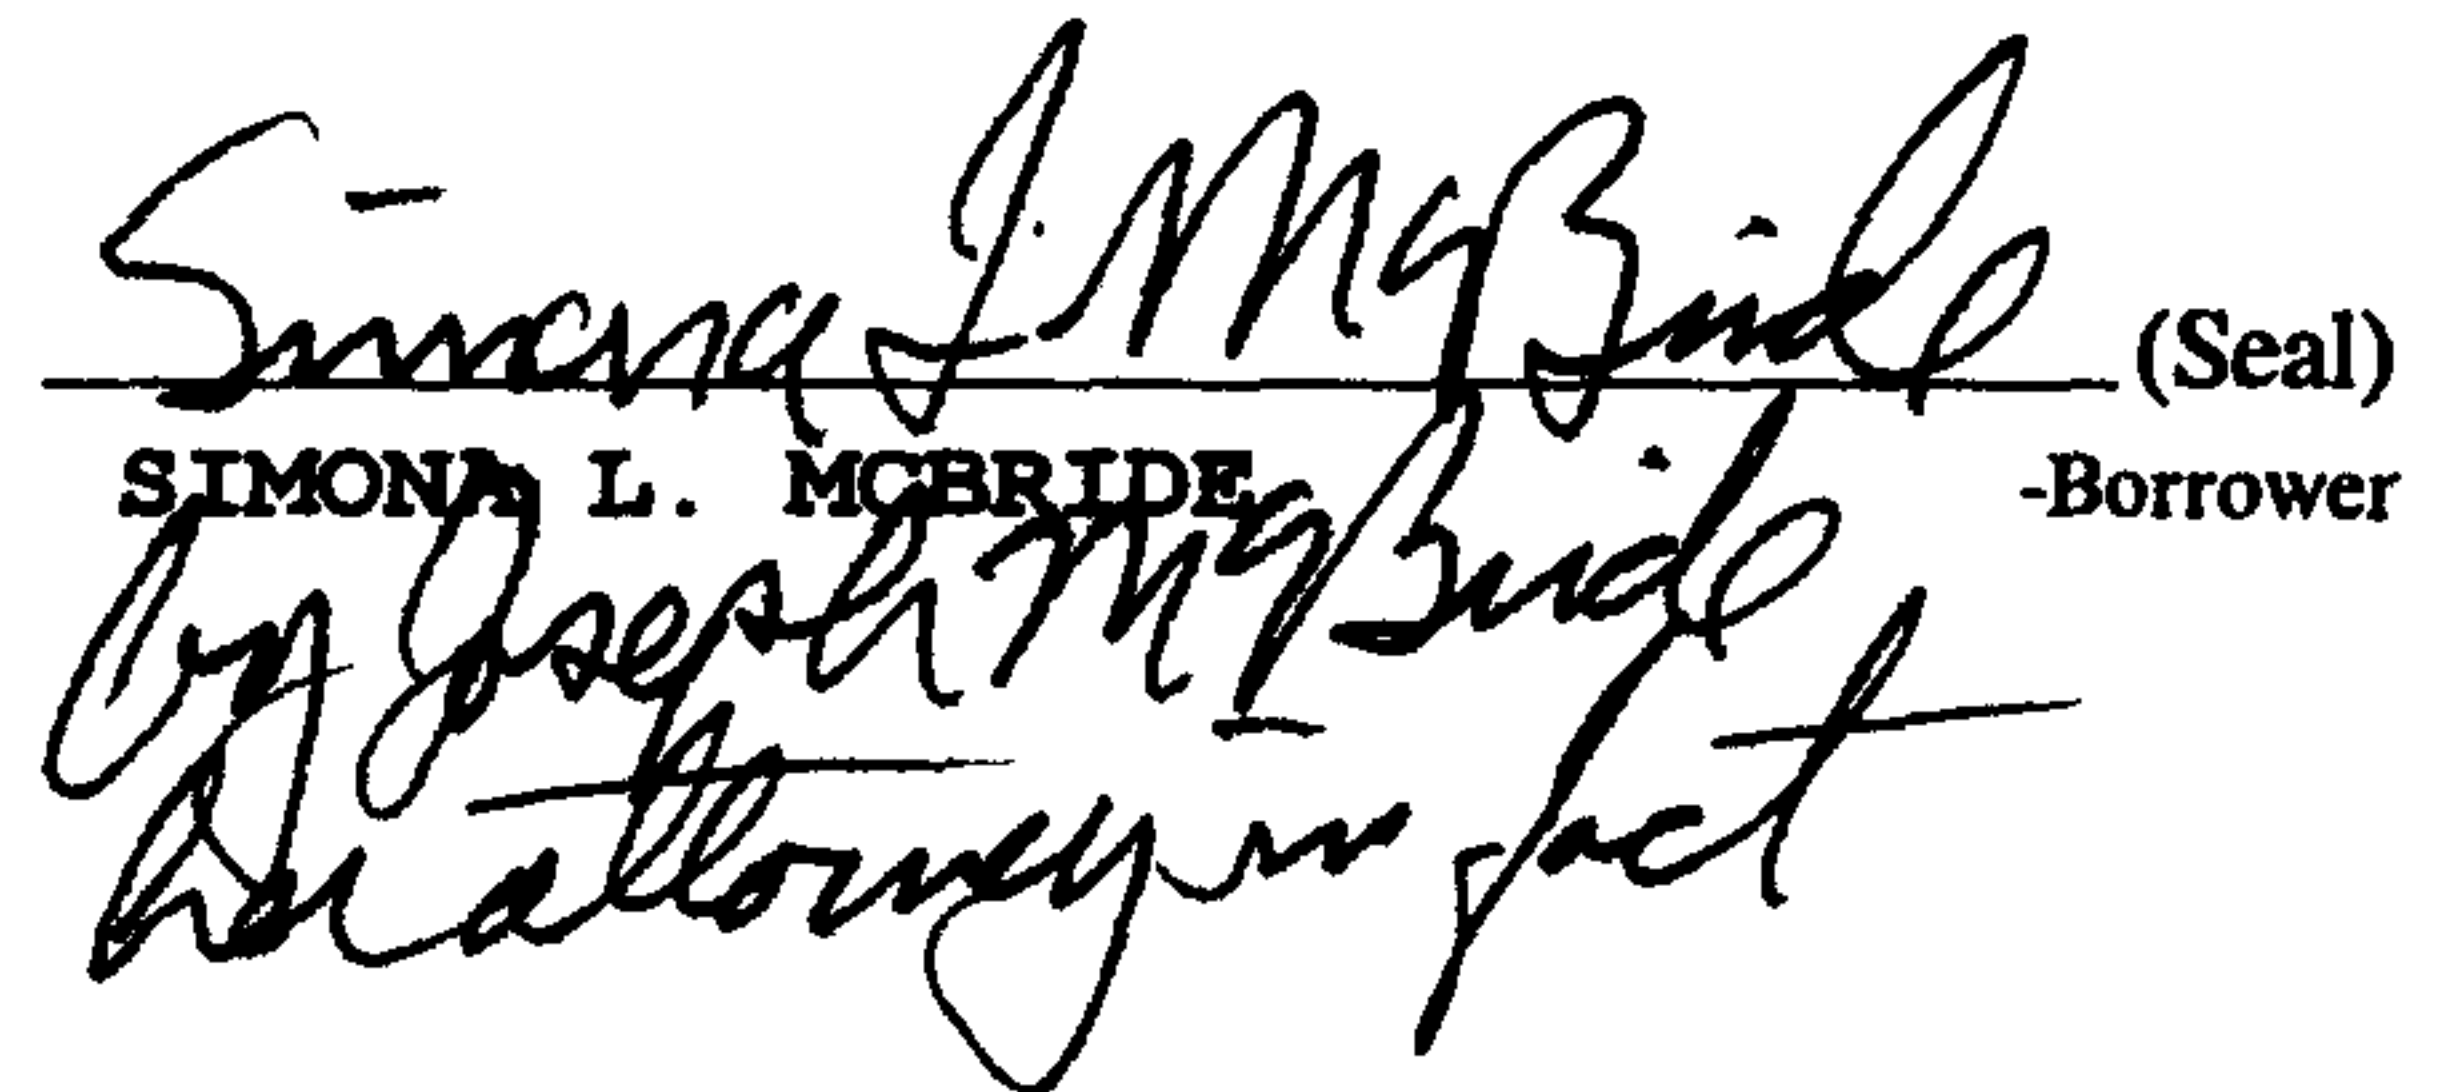 Simona L. McBride (Seal)
SIMONA L. MCBRIDE -Borrower
by Joseph McBride
her attorney in fact